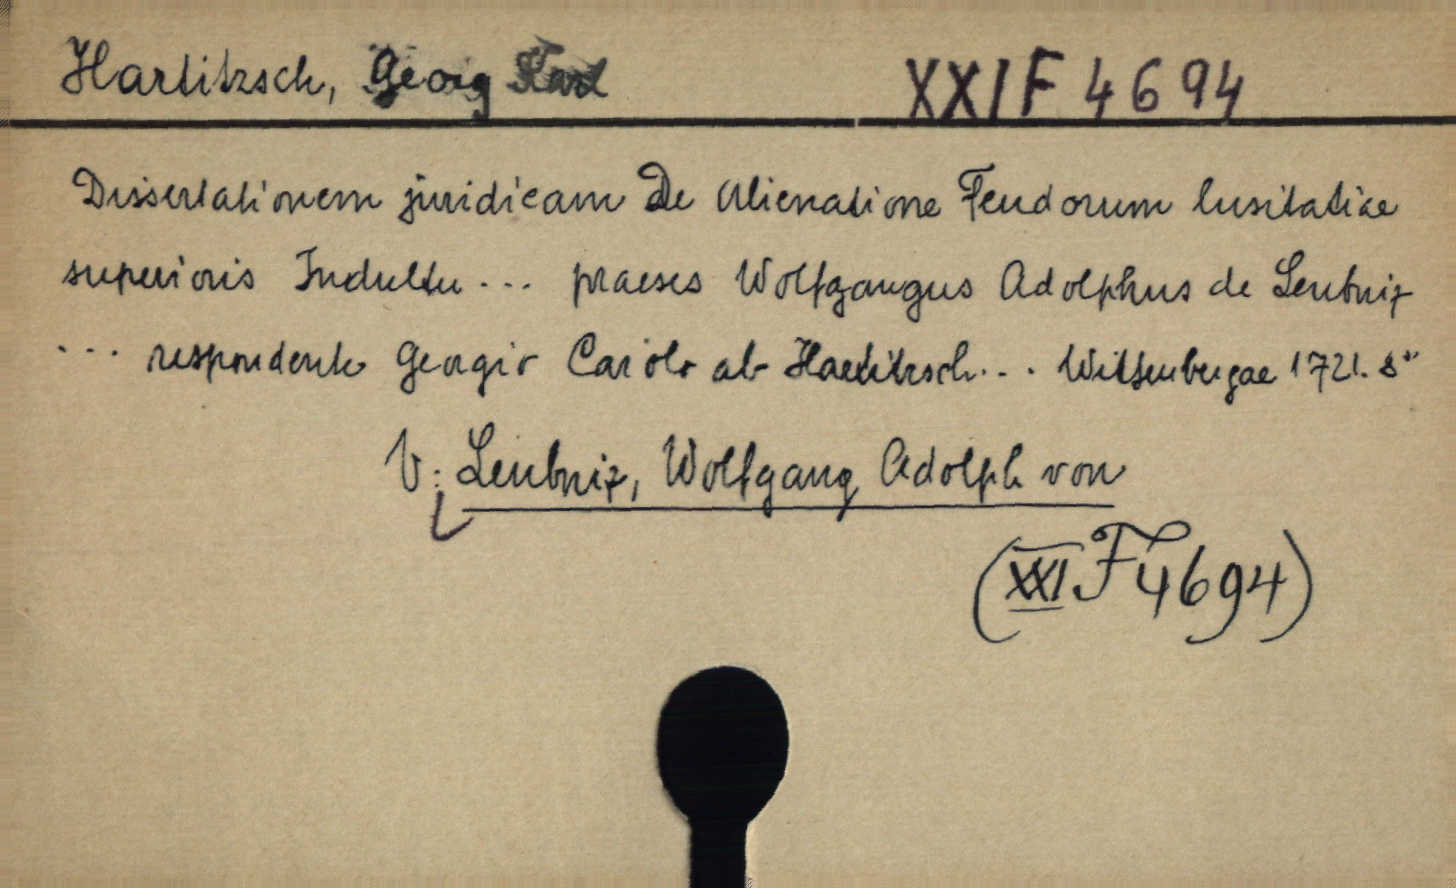 Hartitzsch, Georg Karl XXI F 4694
Dissertationem juridicam De Alienatione Feudorum Lusitatiae
superioris Indultu ... praeses Wolfgangus Adolphus de Leubniz
... respondente Georgio Carolo ab Hartitzsch ... Wittenbergae 1721. 8°
V: Leubniz, Wolfgang Adolph von
(XXI F 4694)